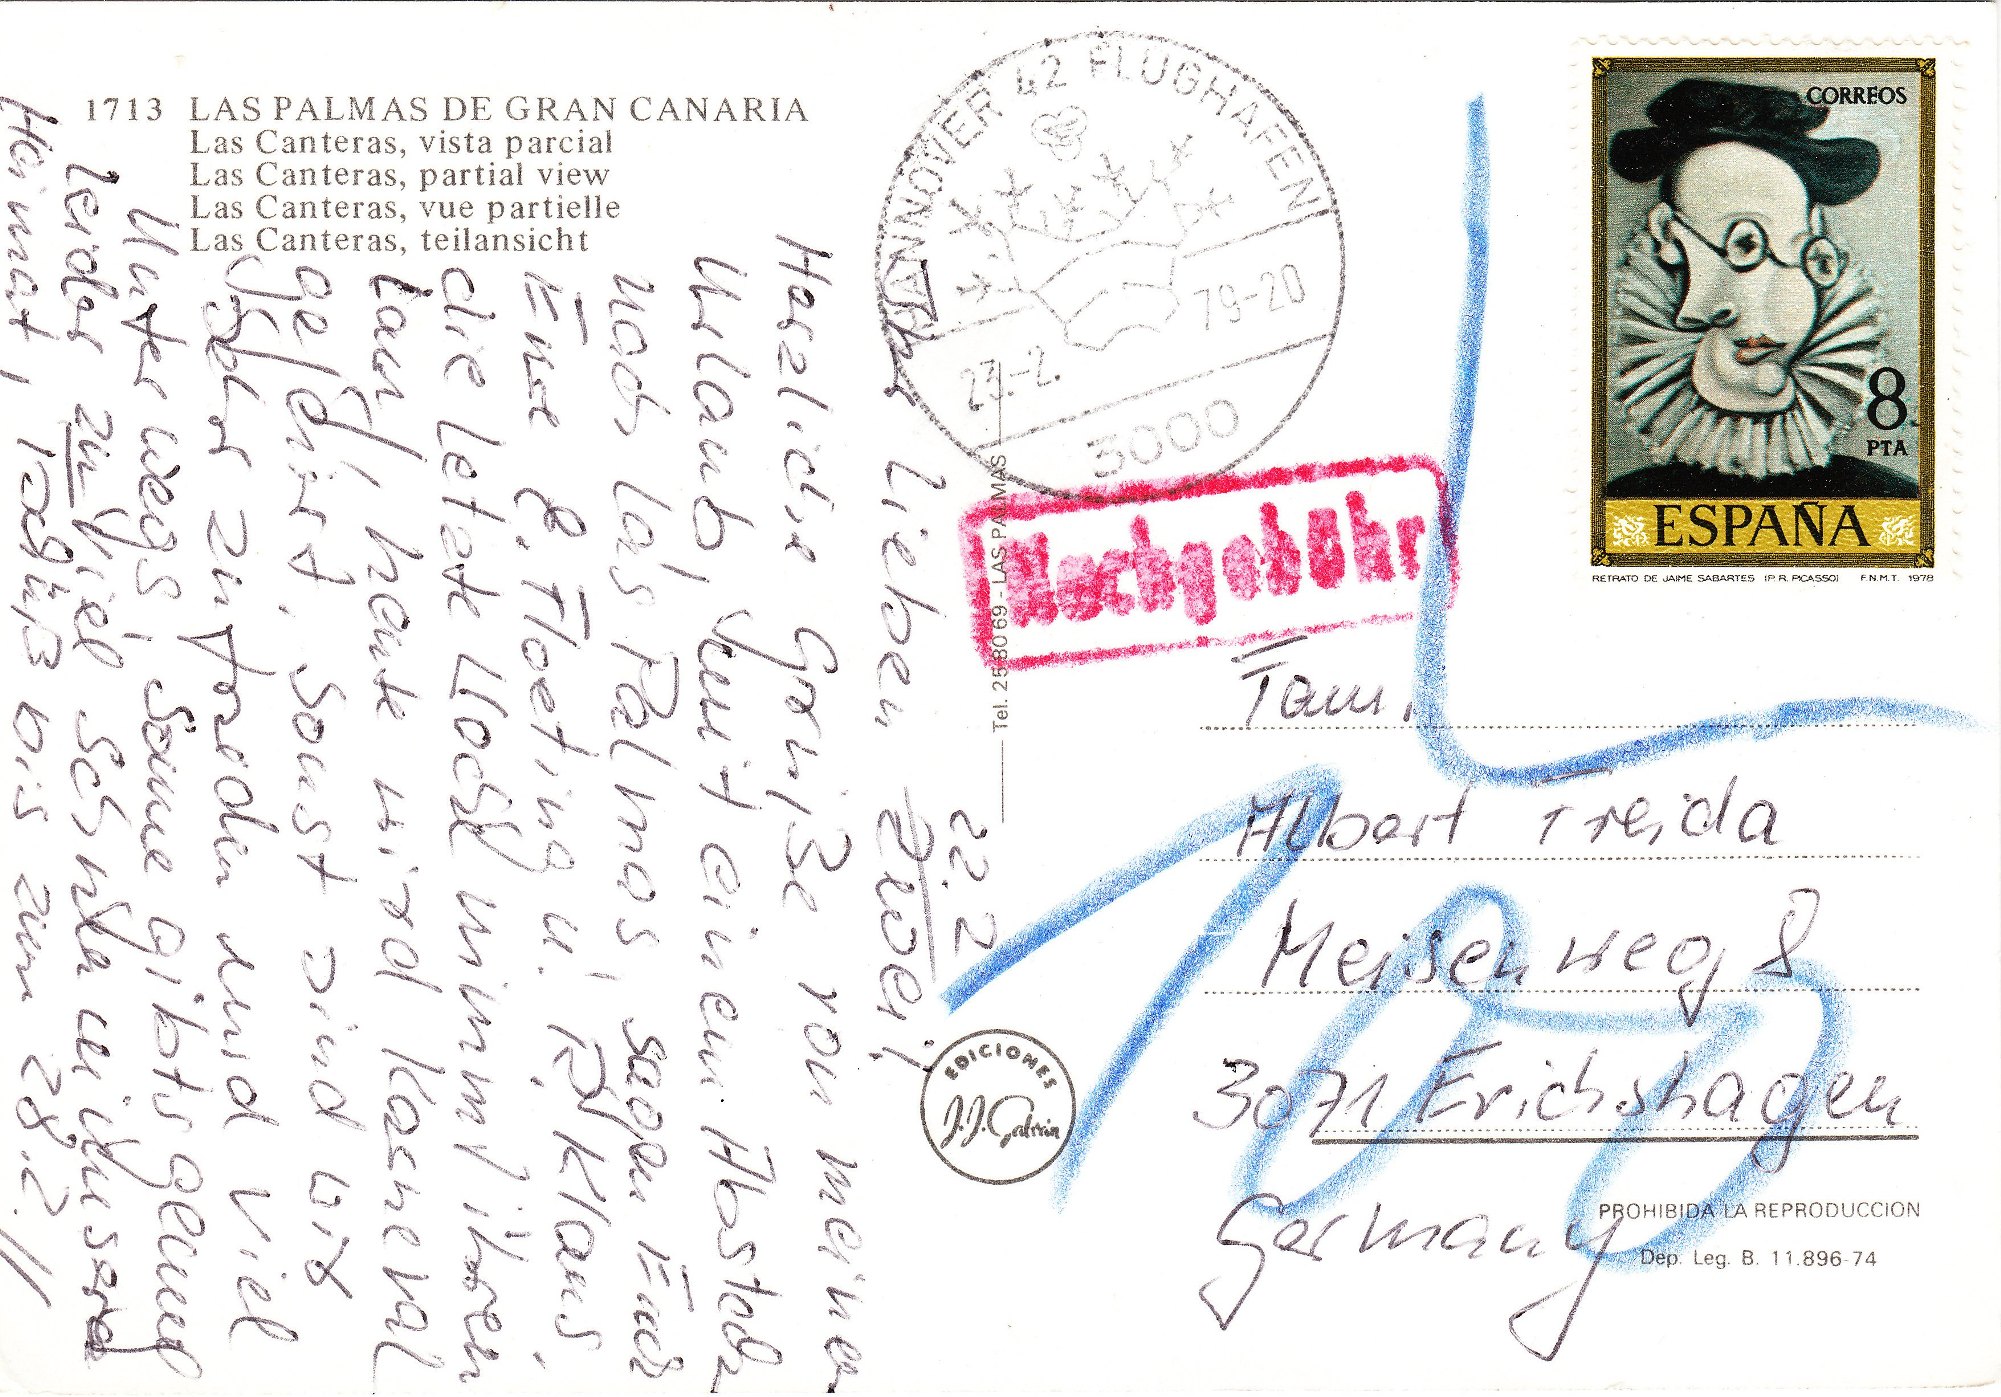 1713 LAS PALMAS DE GRAN CANARIA
Las Canteras, vista parcial
Las Canteras, partial view
Las Canteras, vue partielle
Las Canteras, teilansicht
22.2.
Ihr lieben Zwei!
Herzliche Grüße von meinem
Urlaub, mit einem Abstech
nach Las Palmas, sagen Euch
Eure E. Floeting u. R. Klaus,
die letzte Woche nimmt ihren
Lauf, heute wird Karneval
gefeiert, sonst sind wir
sehr zufrieden und viel
Unterwegs, Sonne gibts genug
leider zu viel Schnee in unserer
Heimat, Tschüß bis zum 28.2.!!
HANNOVER 42 FLUGHAFEN
23.-2. 79-20
3000
Nachgebühr
CORREOS
8
PTA
ESPAÑA
RETRATO DE JAIME SABARTES (P. R. PICASSO) F.N.M.T. 1978
Tel. 25 80 69 - LAS PALMAS
Fam.
Albert Freida
Meisenweg 8
3071 Erichshagen
Germany
100
EDICIONES
J.J. Galarin
PROHIBIDA LA REPRODUCCION
Dep. Leg. B. 11.896-74